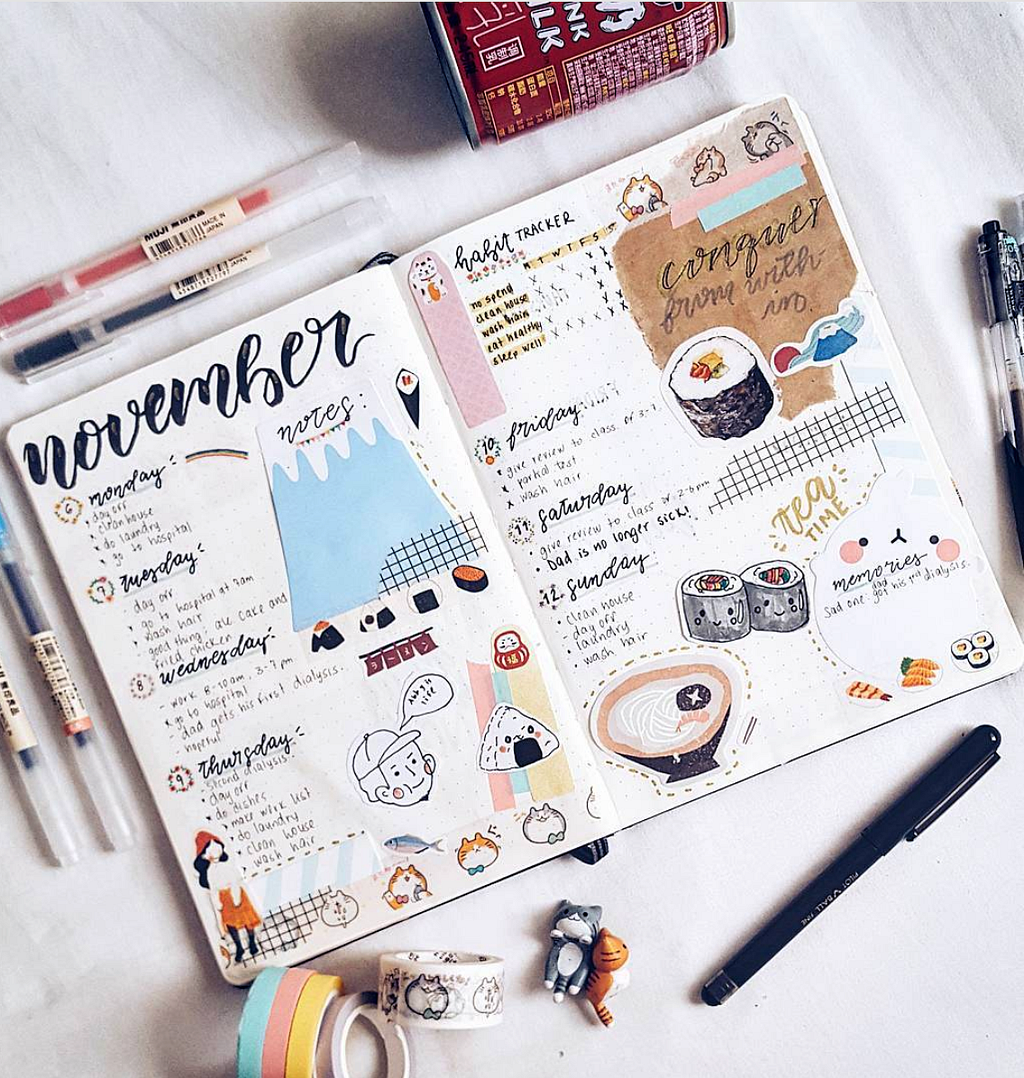 november
notes:
6 monday
day off
clean house
x do laundry
x go to hospital
7 tuesday
day off
x go to hospital at 9am
x wash hair
good thing: ate cake and
fried chicken
8 wednesday
- work 8-10am, 3-7pm
x go to hospital
- dad gets his first dialysis.
- hopeful
9 thursday
second dialysis.
day off
do dishes
make work list
do laundry
clean house
wash hair
habit TRACKER
M T W T F S S
no spend
clean house
wash hair
eat healthy
sleep well
conquer
from with
in.
10 friday
give review to class
x wash hair
11. saturday
give review to class @ 2-6pm
Dad is no longer sick!
12. sunday
clean house
day off
laundry
wash hair
tea
TIME
memories
dad
Sad one: got his 1st dialysis.
ラーメン
福
MUJI 無印良品
MADE IN
JAPAN
調製乳
PILOT V BALL